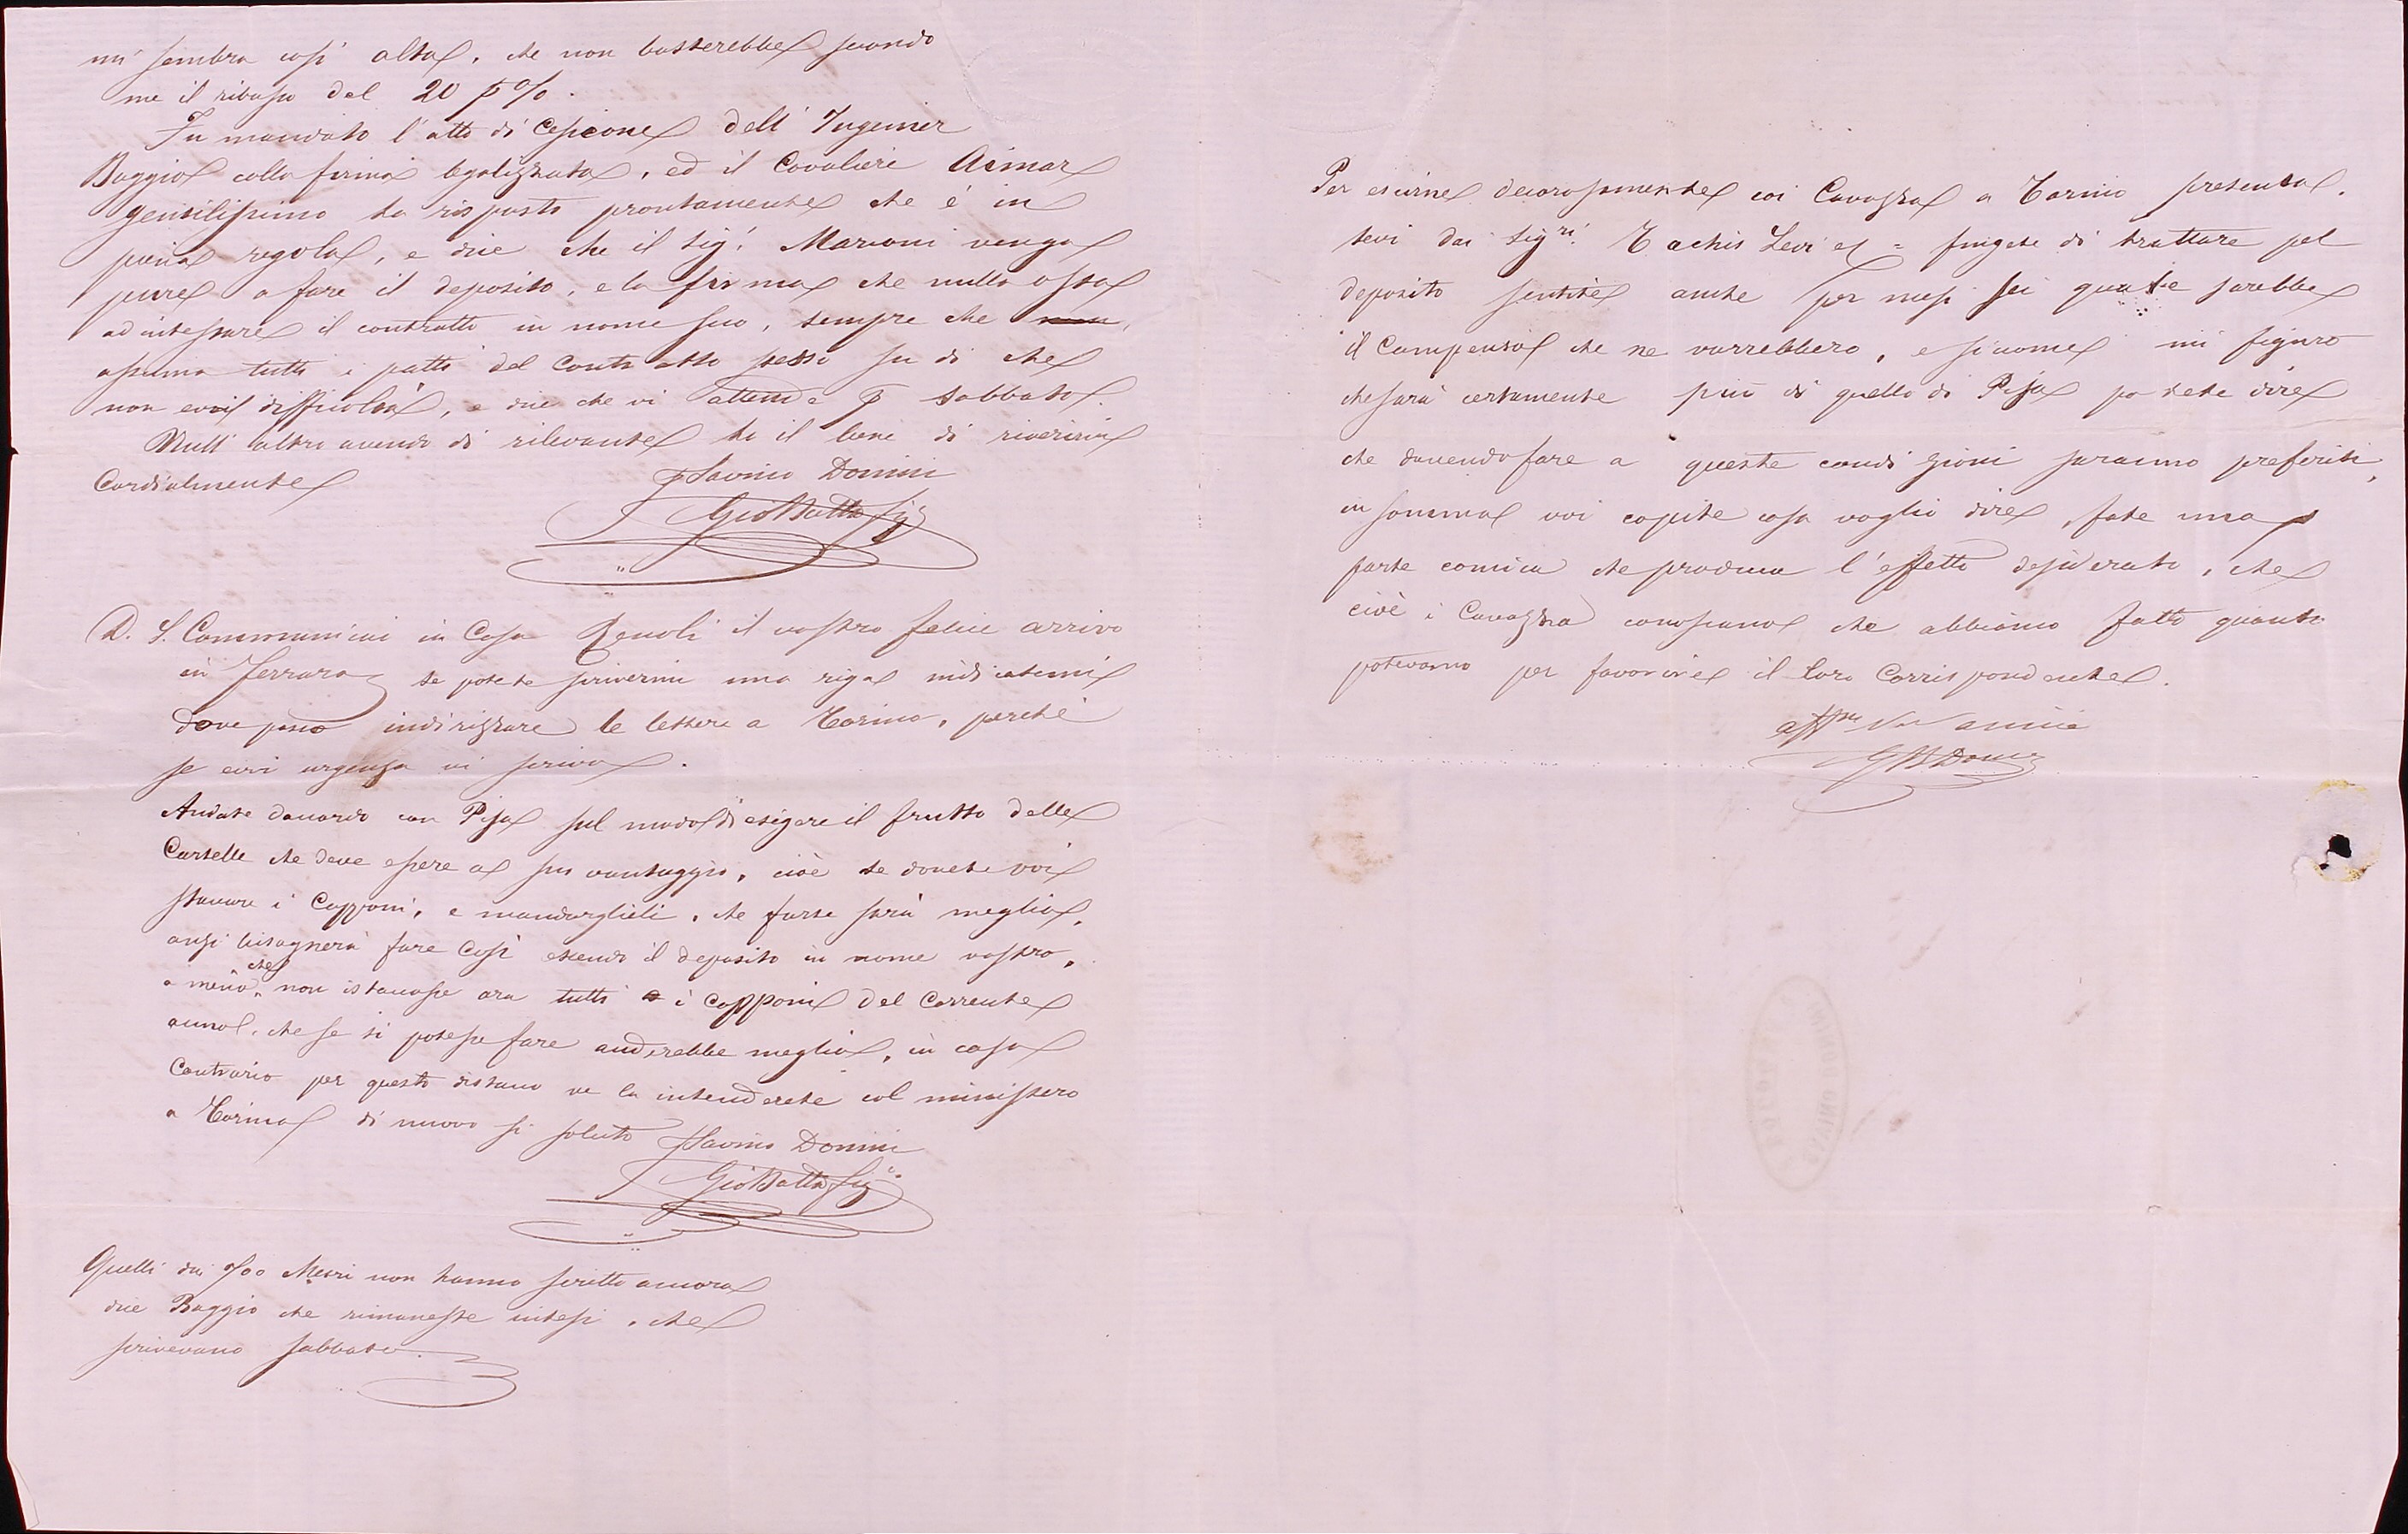 mi sembra così alta, che non basterebbe secondo
me il ribasso del 20 p%.
Fu mandato l'atto di Cessione dell'Ingenier
Baggio colla firma legalizzata, ed il Cavaliere Aimar
gentilissimo ha risposto prontamente che è in
piena regola, e dice che il Sig.r Marioni venga
pure a fare il deposito, e la firma che nulla osta
ad intestare il contratto in nome suo, sempre che non
assuma tutti i patti del Contratto stesso su di che
non evvi difficoltà, e dice che vi attende p sabbato.
Null'altro avendo di rilevante ho il bene di riverirvi
Cordialmente
Savino Donini
Gio Batta fig.o
D. S. Communicai in Casa il vostro felice arrivo
in Ferrara se potete scrivermi una riga indicatemi
dove posso indirizzare le lettere a Torino, perchè
se evvi urgenza vi scriva.
Andate d'accordo con Pisa sul modo di esigere il frutto delle
Cartelle che deve essere a suo vantaggio, cioè se dovete voi
staccare i Copponi, e mandarglieli, che forse sarà meglio,
anzi bisognerà fare così essendo il deposito in nome vostro,
a meno che non istaccasse ora tutti i copponi del Corrente
anno, che se si potesse fare anderebbe meglio, in caso
Contrario per questo distacco ve la intenderete col ministero
a Torino di nuovo si saluto
Savino Donini
Gio Batta fig.o
Quelli dei 700 Metri non hanno scritto ancora
dice Baggio che rimaneste intesi, che
scrivevano sabbato.
Per escirne decorosamente coi Cavazza a Torino presenta-
tevi dai Sig.ri Tachis Levi e = fingete di trattare pel
deposito sentite anche per mesi sei quale sarebbe
il Compenso che ne vorrebbero, e siccome mi figuro
che sarà certamente più di quello di Pisa potete dire
che dovendo fare a queste condizioni saranno preferiti,
in somma voi capite cosa voglio dire, fate una
parte comica che produca l'effetto desiderato, che
cioè i Cavazza conoscano che abbiamo fatto quanto
potevamo per favorire il loro Corrispondente.
aff.mo amico
GB Donini